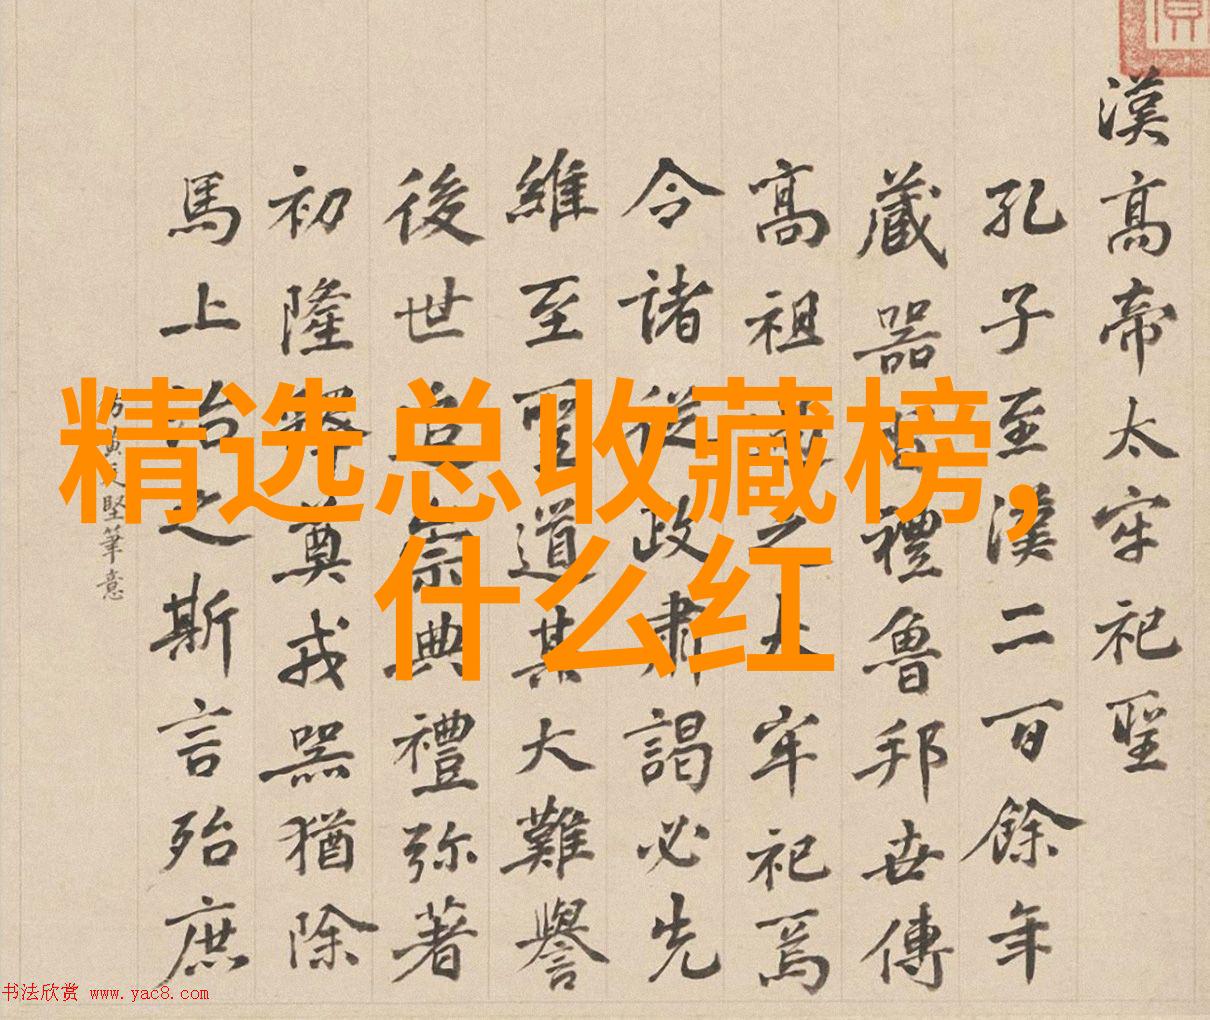 漢高帝太牢祀聖
孔子至漢二百餘年
藏器禮魯邦世傳
高祖之牢祀焉
令諸從政肅謁必先
維至聖道其大難譽
後世追宗典禮弥著
初隆釋奠戎器猶除
馬上治之斯言殆庶
堅筆意
精选总收藏榜,
什么红
书法欣赏 www.yac8.com